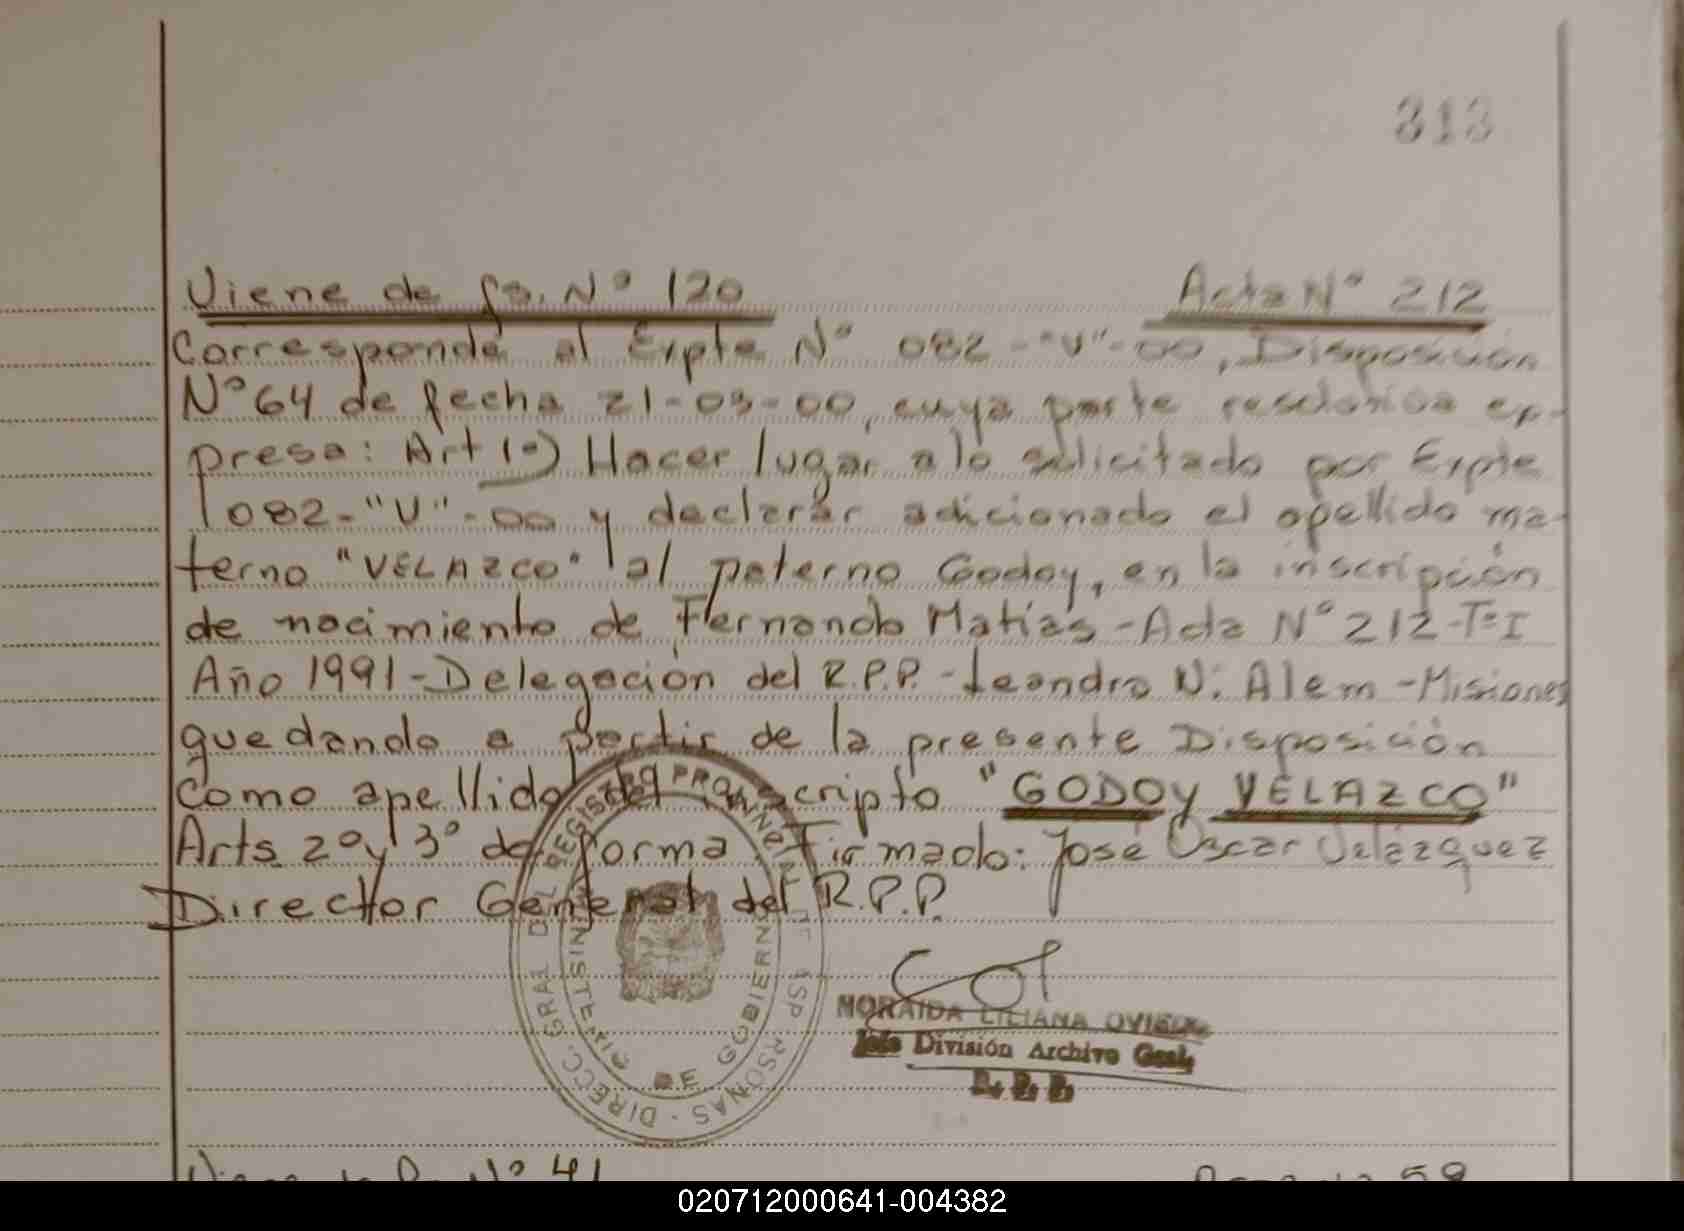 313
Viene de fs. Nº 120 Acta Nº 212
Corresponde al Expte Nº 082-"V"-00, Disposición
Nº 64 de fecha 21-03-00, cuya parte resolutiva ex-
presa: Art 1º) Hacer lugar a lo solicitado por Expte
082-"V"-00 y declarar adicionado el apellido ma-
terno "VELAZCO" al paterno Godoy, en la inscripción
de nacimiento de Fernando Matías - Acta Nº 212-Tº I
Año 1991 - Delegación del R.P.P. - Leandro N. Alem - Misiones
quedando a partir de la presente Disposición
como apellido del inscripto "GODOY VELAZCO"
Arts 2º y 3º de forma. Firmado: José Oscar Velázquez
Director General del R.P.P.
DIRECC. GRAL DEL REGISTRO PROVINCIAL DE PERSONAS
MINISTERIO DE GOBIERNO
NORAIDA LILIANA OVIEDO
Jefe División Archivo Gral.
R. P. P.
Viene de fs. Nº 41
020712000641-004382